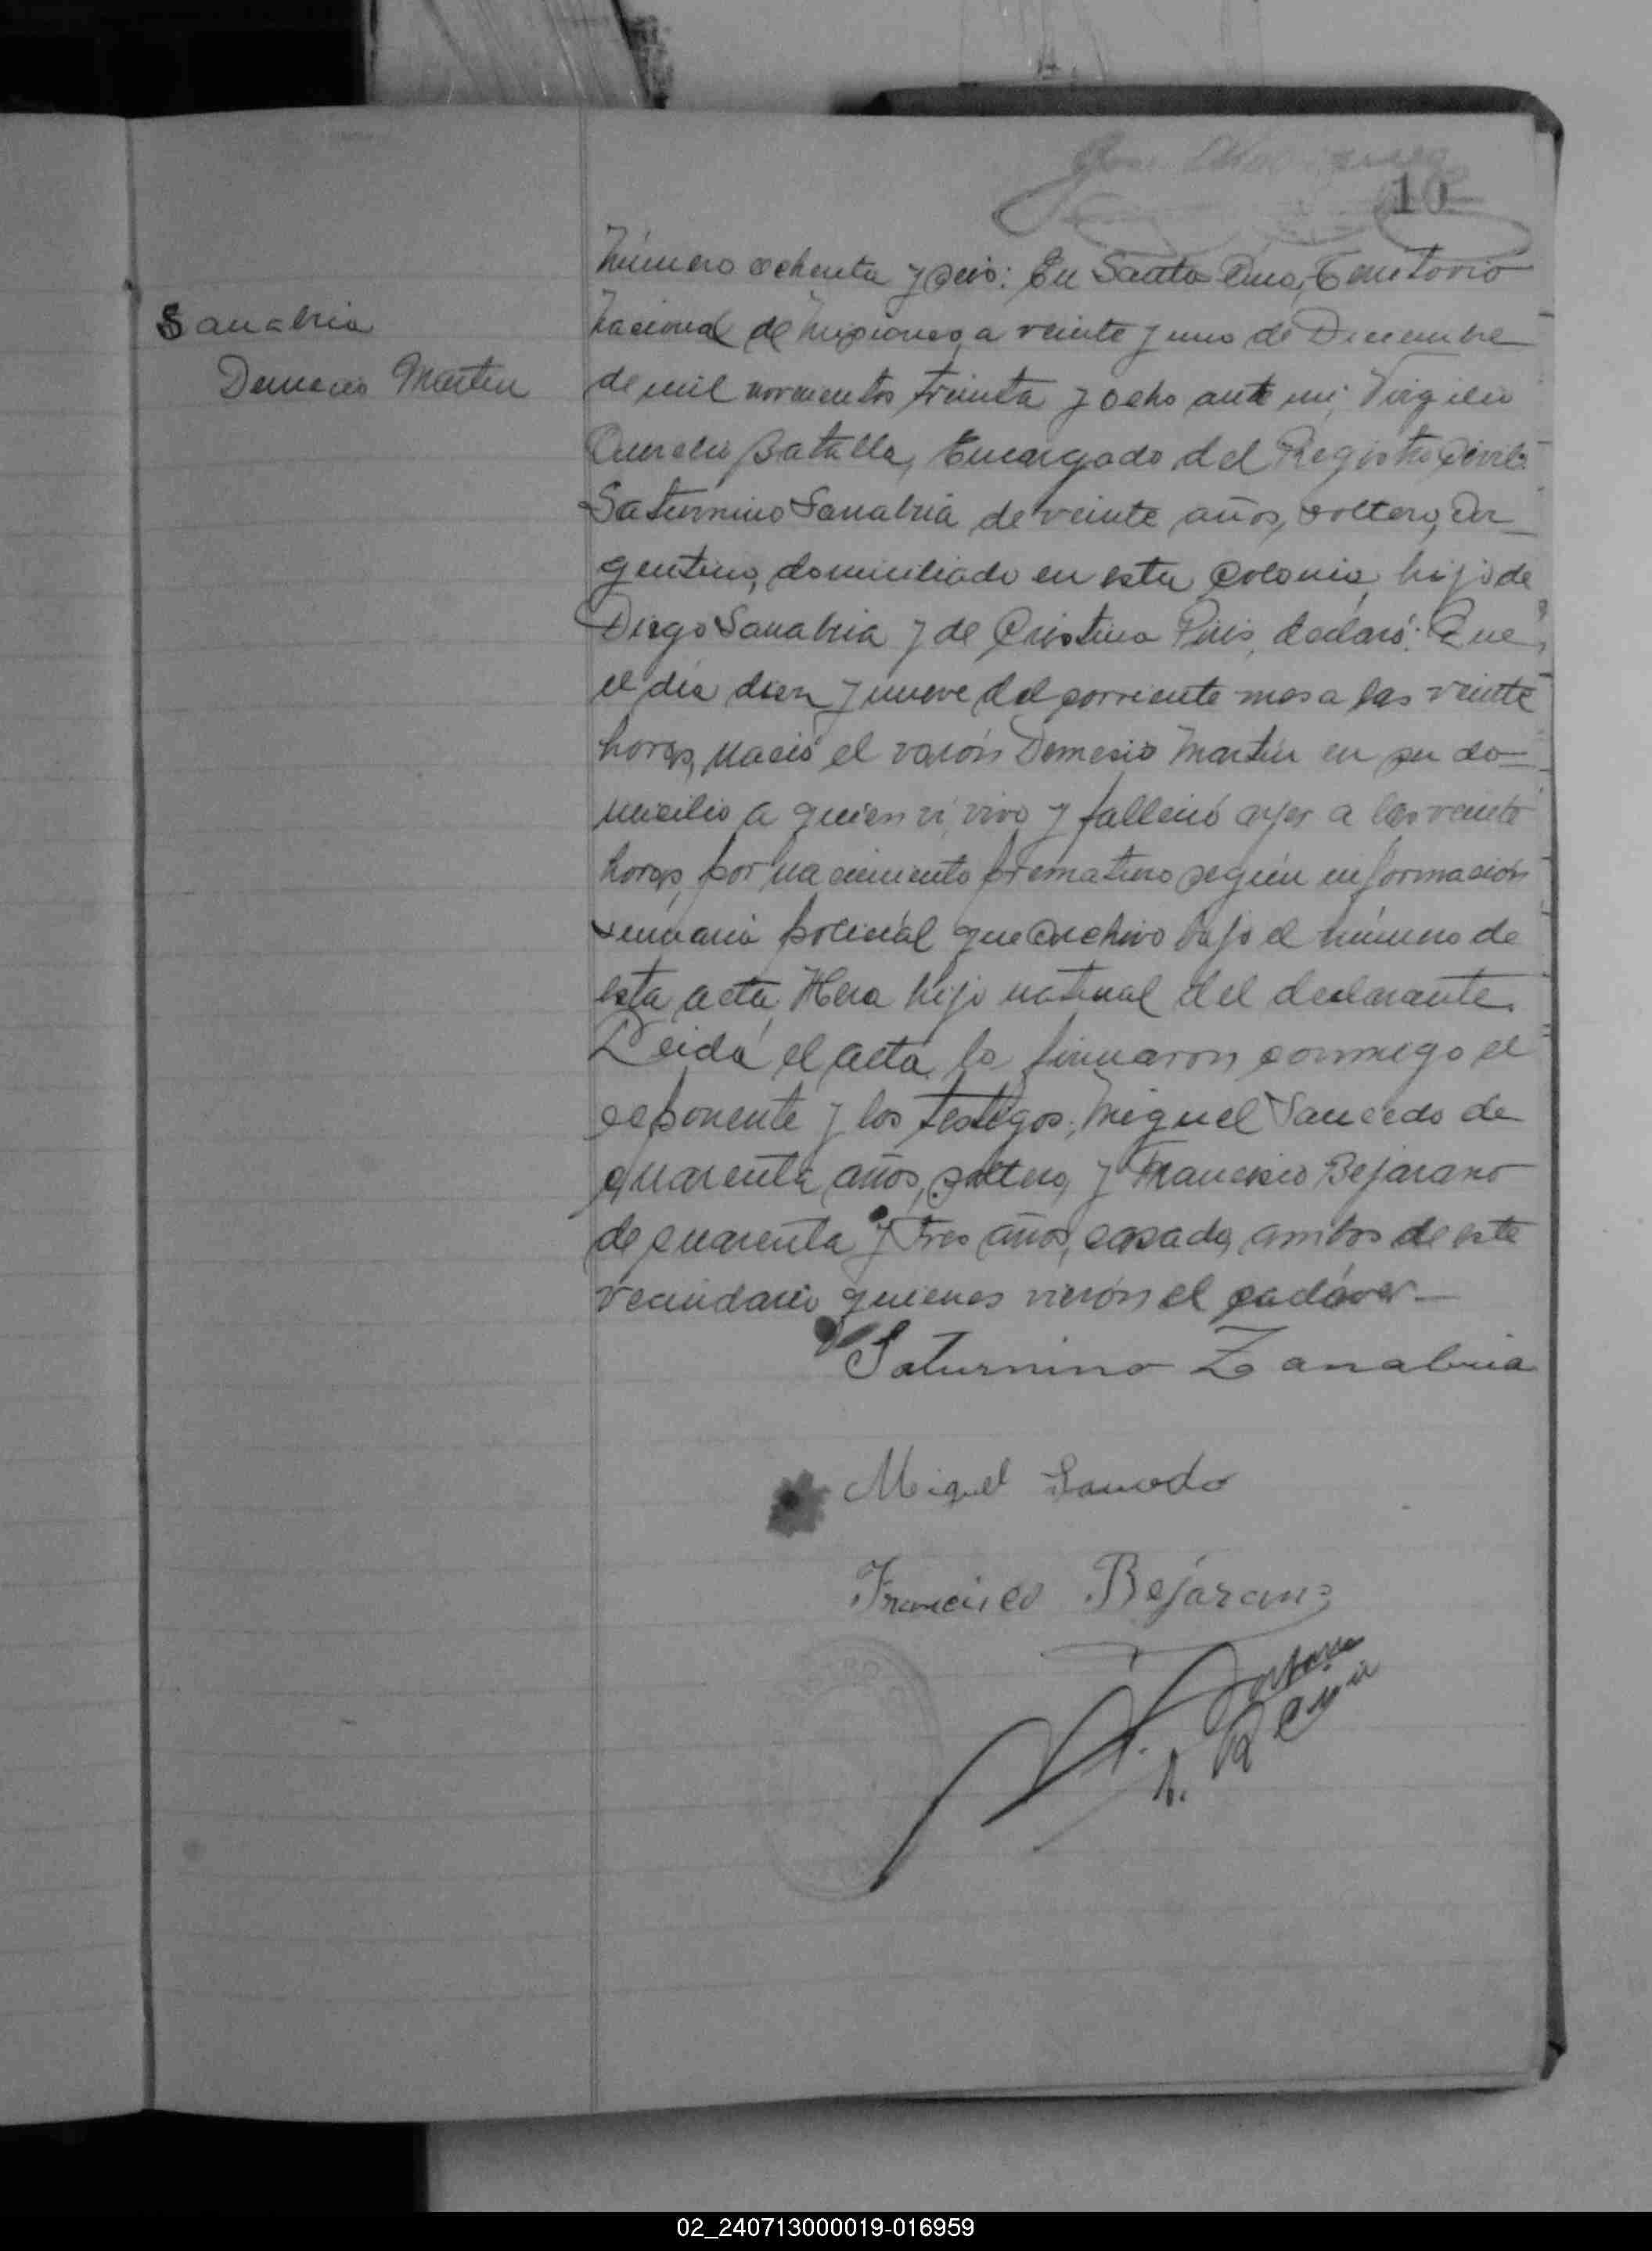 10
Sanabria
Demesio Martin
Número ochenta y seis: En Santa Ana, Territorio
Nacional de Misiones, a veinte y uno de Diciembre
de mil novecientos treinta y ocho ante mi, Virgilio
Aurelio Batalla, Encargado del Registro Civil:
Saturnino Sanabria de veinte años, soltero, Ar-
gentino, domiciliado en esta Colonia, hijo de
Diego Sanabria y de Cristina Piris, declaró: Que,
el día diez y nueve del corriente mes a las veinte
horas, nació el varón Demesio Martin en su do-
micilio a quien vi vivo y falleció ayer a las veinte
horas, por nacimiento prematuro según información
sumaria policial que archivo bajo el número de
esta acta. Hera hijo natural del declarante.
Leida el acta, la firmaron conmigo el
esponente y los testigos: Miguel Saucedo de
cuarenta años, soltero, y Francisco Bejarano
de cuarenta y tres años, casado, ambos de este
vecindario quienes vieron el cadáver.—
Saturnino Zanabria
Miguel Saucedo
Francisco Bejarano
02_240713000019-016959